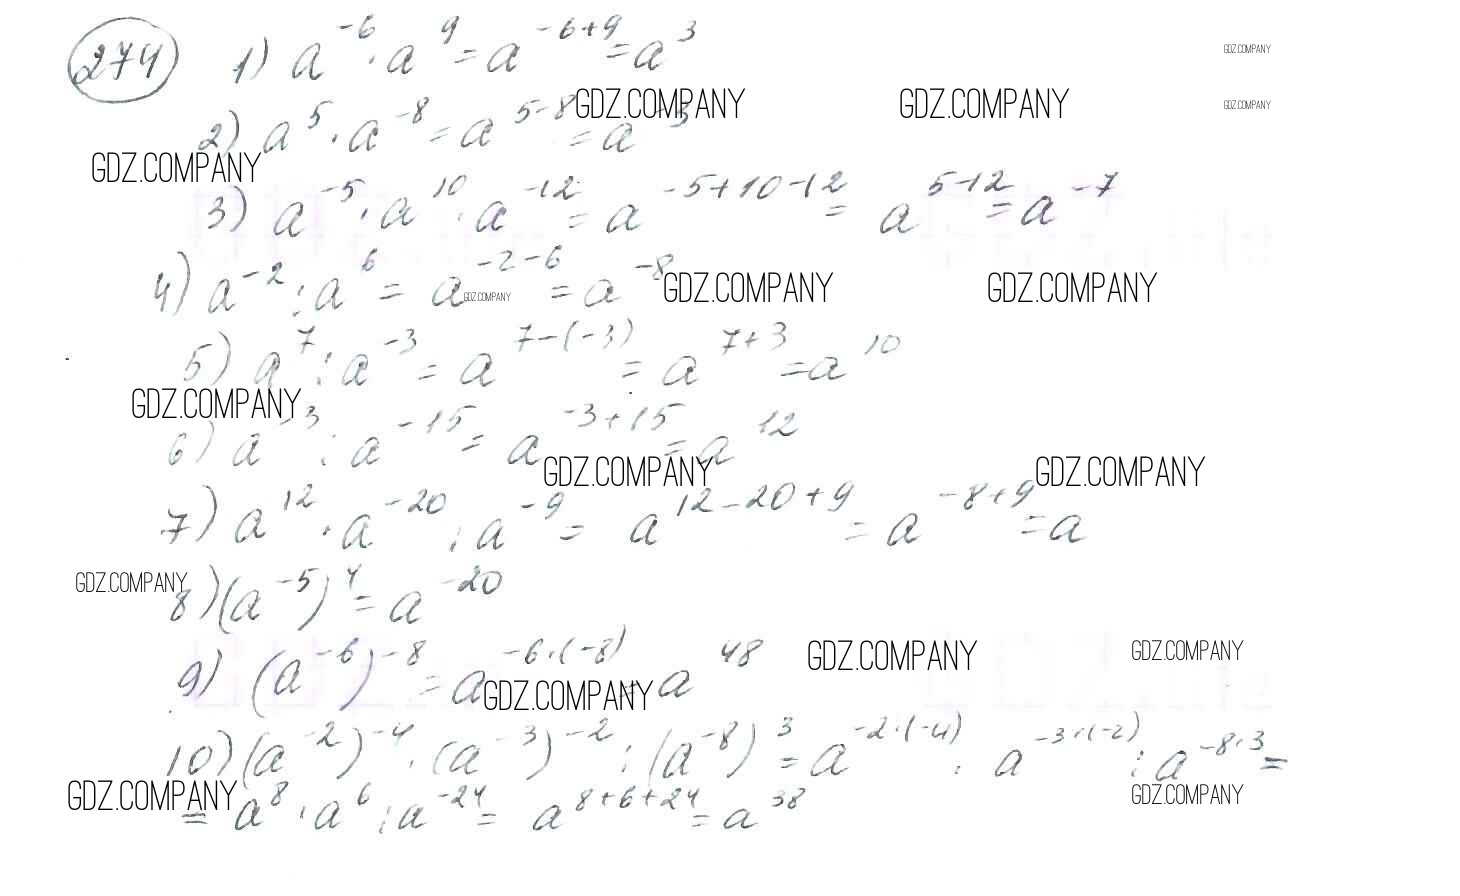 274 1) a^-6 · a^9 = a^-6+9 = a^3
GDZ.COMPANY
GDZ.COMPANY GDZ.COMPANY GDZ.COMPANY
2) a^5 · a^-8 = a^5-8 = a^-3
GDZ.COMPANY
3) a^-5 · a^10 · a^-12 = a^-5+10-12 = a^5-12 = a^-7
4) a^-2 : a^6 = a^-2-6 = a^-8
GDZ.COMPANY GDZ.COMPANY GDZ.COMPANY
5) a^7 : a^-3 = a^7-(-3) = a^7+3 = a^10
GDZ.COMPANY
6) a^-3 : a^-15 = a^-3+15 = a^12
GDZ.COMPANY GDZ.COMPANY
7) a^12 · a^-20 : a^-9 = a^12-20+9 = a^-8+9 = a
GDZ.COMPANY
8) (a^-5)^4 = a^-20
9) (a^-6)^-8 = a^-6·(-8) = a^48
GDZ.COMPANY GDZ.COMPANY
GDZ.COMPANY
10) (a^-2)^-4 · (a^-3)^-2 : (a^-8)^3 = a^-2·(-4) · a^-3·(-2) : a^-8·3 =
GDZ.COMPANY GDZ.COMPANY
= a^8 · a^6 : a^-24 = a^8+6+24 = a^38